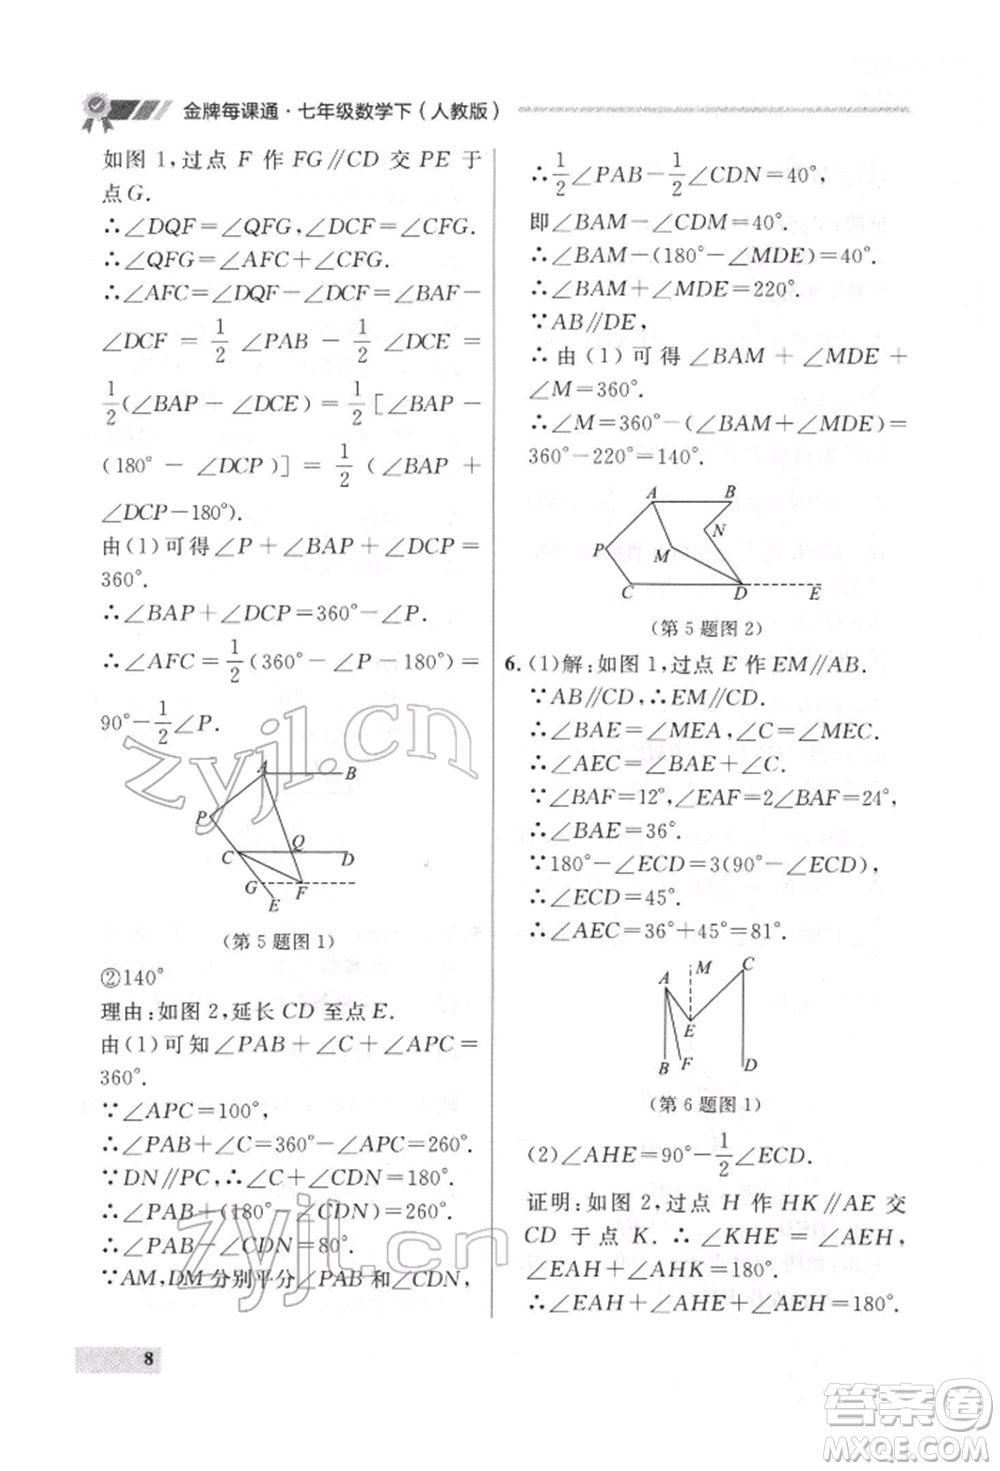 金牌每课通·七年级数学下(人教版)
如图 1,过点 F 作 FG∥CD 交 PE 于
点G.
∴∠DQF=∠QFG,∠DCF=∠CFG.
∴∠QFG=∠AFC+∠CFG.
∴∠AFC=∠DQF-∠DCF=∠BAF-
∠DCF = 1/2 ∠PAB - 1/2 ∠DCE =
1/2(∠BAP-∠DCE)=1/2[∠BAP-
(180°-∠DCP)]=1/2(∠BAP+
∠DCP-180°).
由(1)可得∠P+∠BAP+∠DCP=
360°.
∴∠BAP+∠DCP=360°-∠P.
∴∠AFC=1/2(360°-∠P-180°)=
90°-1/2∠P.
A B
P
C Q D
G F
E
(第 5 题图 1)
②140°
理由:如图 2,延长 CD 至点 E.
由(1)可知∠PAB+∠C+∠APC=
360°.
∵∠APC=100°,
∴∠PAB+∠C=360°-∠APC=260°.
∵DN∥PC,∴∠C+∠CDN=180°.
∴∠PAB+(180°-∠CDN)=260°.
∴∠PAB-∠CDN=80°.
∵AM,DM 分别平分∠PAB和∠CDN,
∴1/2∠PAB-1/2∠CDN=40°,
即∠BAM-∠CDM=40°.
∴∠BAM-(180°-∠MDE)=40°.
∴∠BAM+∠MDE=220°.
∵AB∥DE,
∴由(1)可得∠BAM+∠MDE+
∠M=360°.
∴∠M=360°-(∠BAM+∠MDE)=
360°-220°=140°.
A B
N
P M
C D E
(第 5 题图 2)
6.(1)解:如图 1,过点 E 作 EM∥AB.
∵AB∥CD,∴EM∥CD.
∴∠BAE=∠MEA,∠C=∠MEC.
∴∠AEC=∠BAE+∠C.
∵∠BAF=12°,∠EAF=2∠BAF=24°,
∴∠BAE=36°.
∵180°-∠ECD=3(90°-∠ECD),
∴∠ECD=45°.
∴∠AEC=36°+45°=81°.
A M C
E
B F D
(第 6 题图 1)
(2)∠AHE=90°-1/2∠ECD.
证明:如图 2,过点 H 作 HK∥AE 交
CD 于点 K. ∴ ∠KHE = ∠AEH,
∠EAH+∠AHK=180°.
∴∠EAH+∠AHE+∠AEH=180°.
8
zyjl.cn
zyjl.cn
答案圈
MXQE.COM